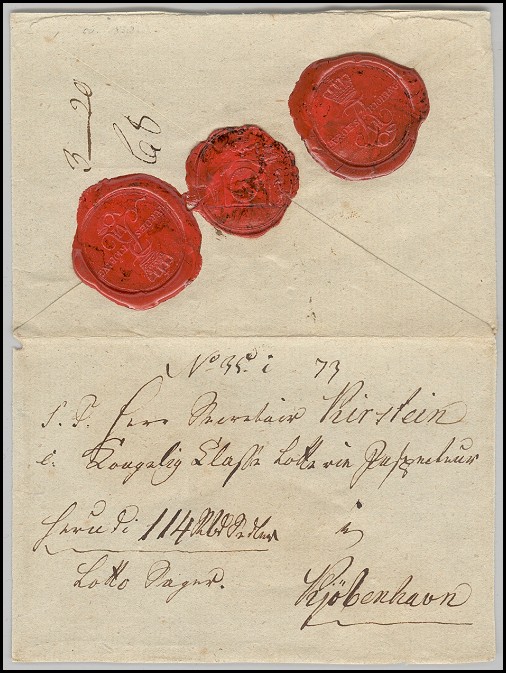 3 — 20
68
No 35. i 73
S. T. Herr Secretair Kirstein
Kongelig Classe Lotterie Inspecteur
i
herudi 114 Rbd Sedler
Lotto Sager.
Kjöbenhavn